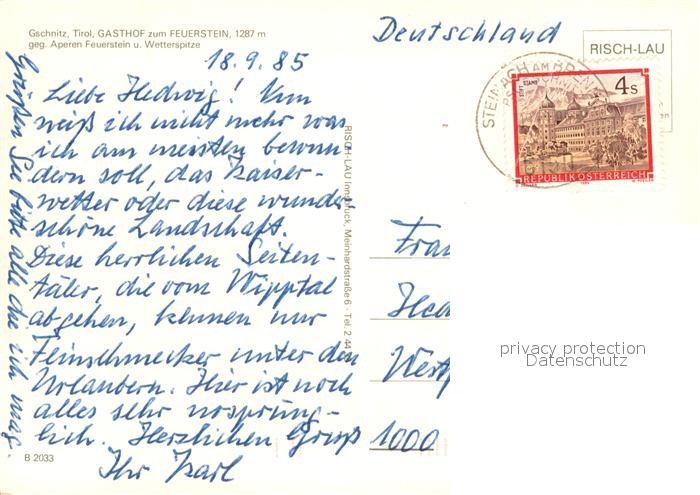 Gschnitz, Tirol, GASTHOF zum FEUERSTEIN, 1287 m
geg. Aperen Feuerstein u. Wetterspitze
18.9.85
Liebe Hedwig! Nun
weiß ich nicht mehr was
ich am meisten bewun-
dern soll, das Kaiser-
wetter oder diese wunder-
schöne Landschaft.
Diese herrlichen Seiten-
täler, die vom Wipptal
abgehen, kennen nur
Feinschmecker unter den
Urlaubern. Hier ist noch
alles sehr ursprüng-
lich. Herzlichen Gruß
Ihr Karl
Grüßen Sie bitte alle die ich mag.
B 2033
RISCH-LAU Innsbruck, Meinhardstraße 6 - Tel. 2 44
Deutschland
RISCH-LAU
STEINACH AM BREN
STIFT STAMS
4s
REPUBLIK ÖSTERREICH
Frau
Hed
Westp
1000
privacy protection
Datenschutz